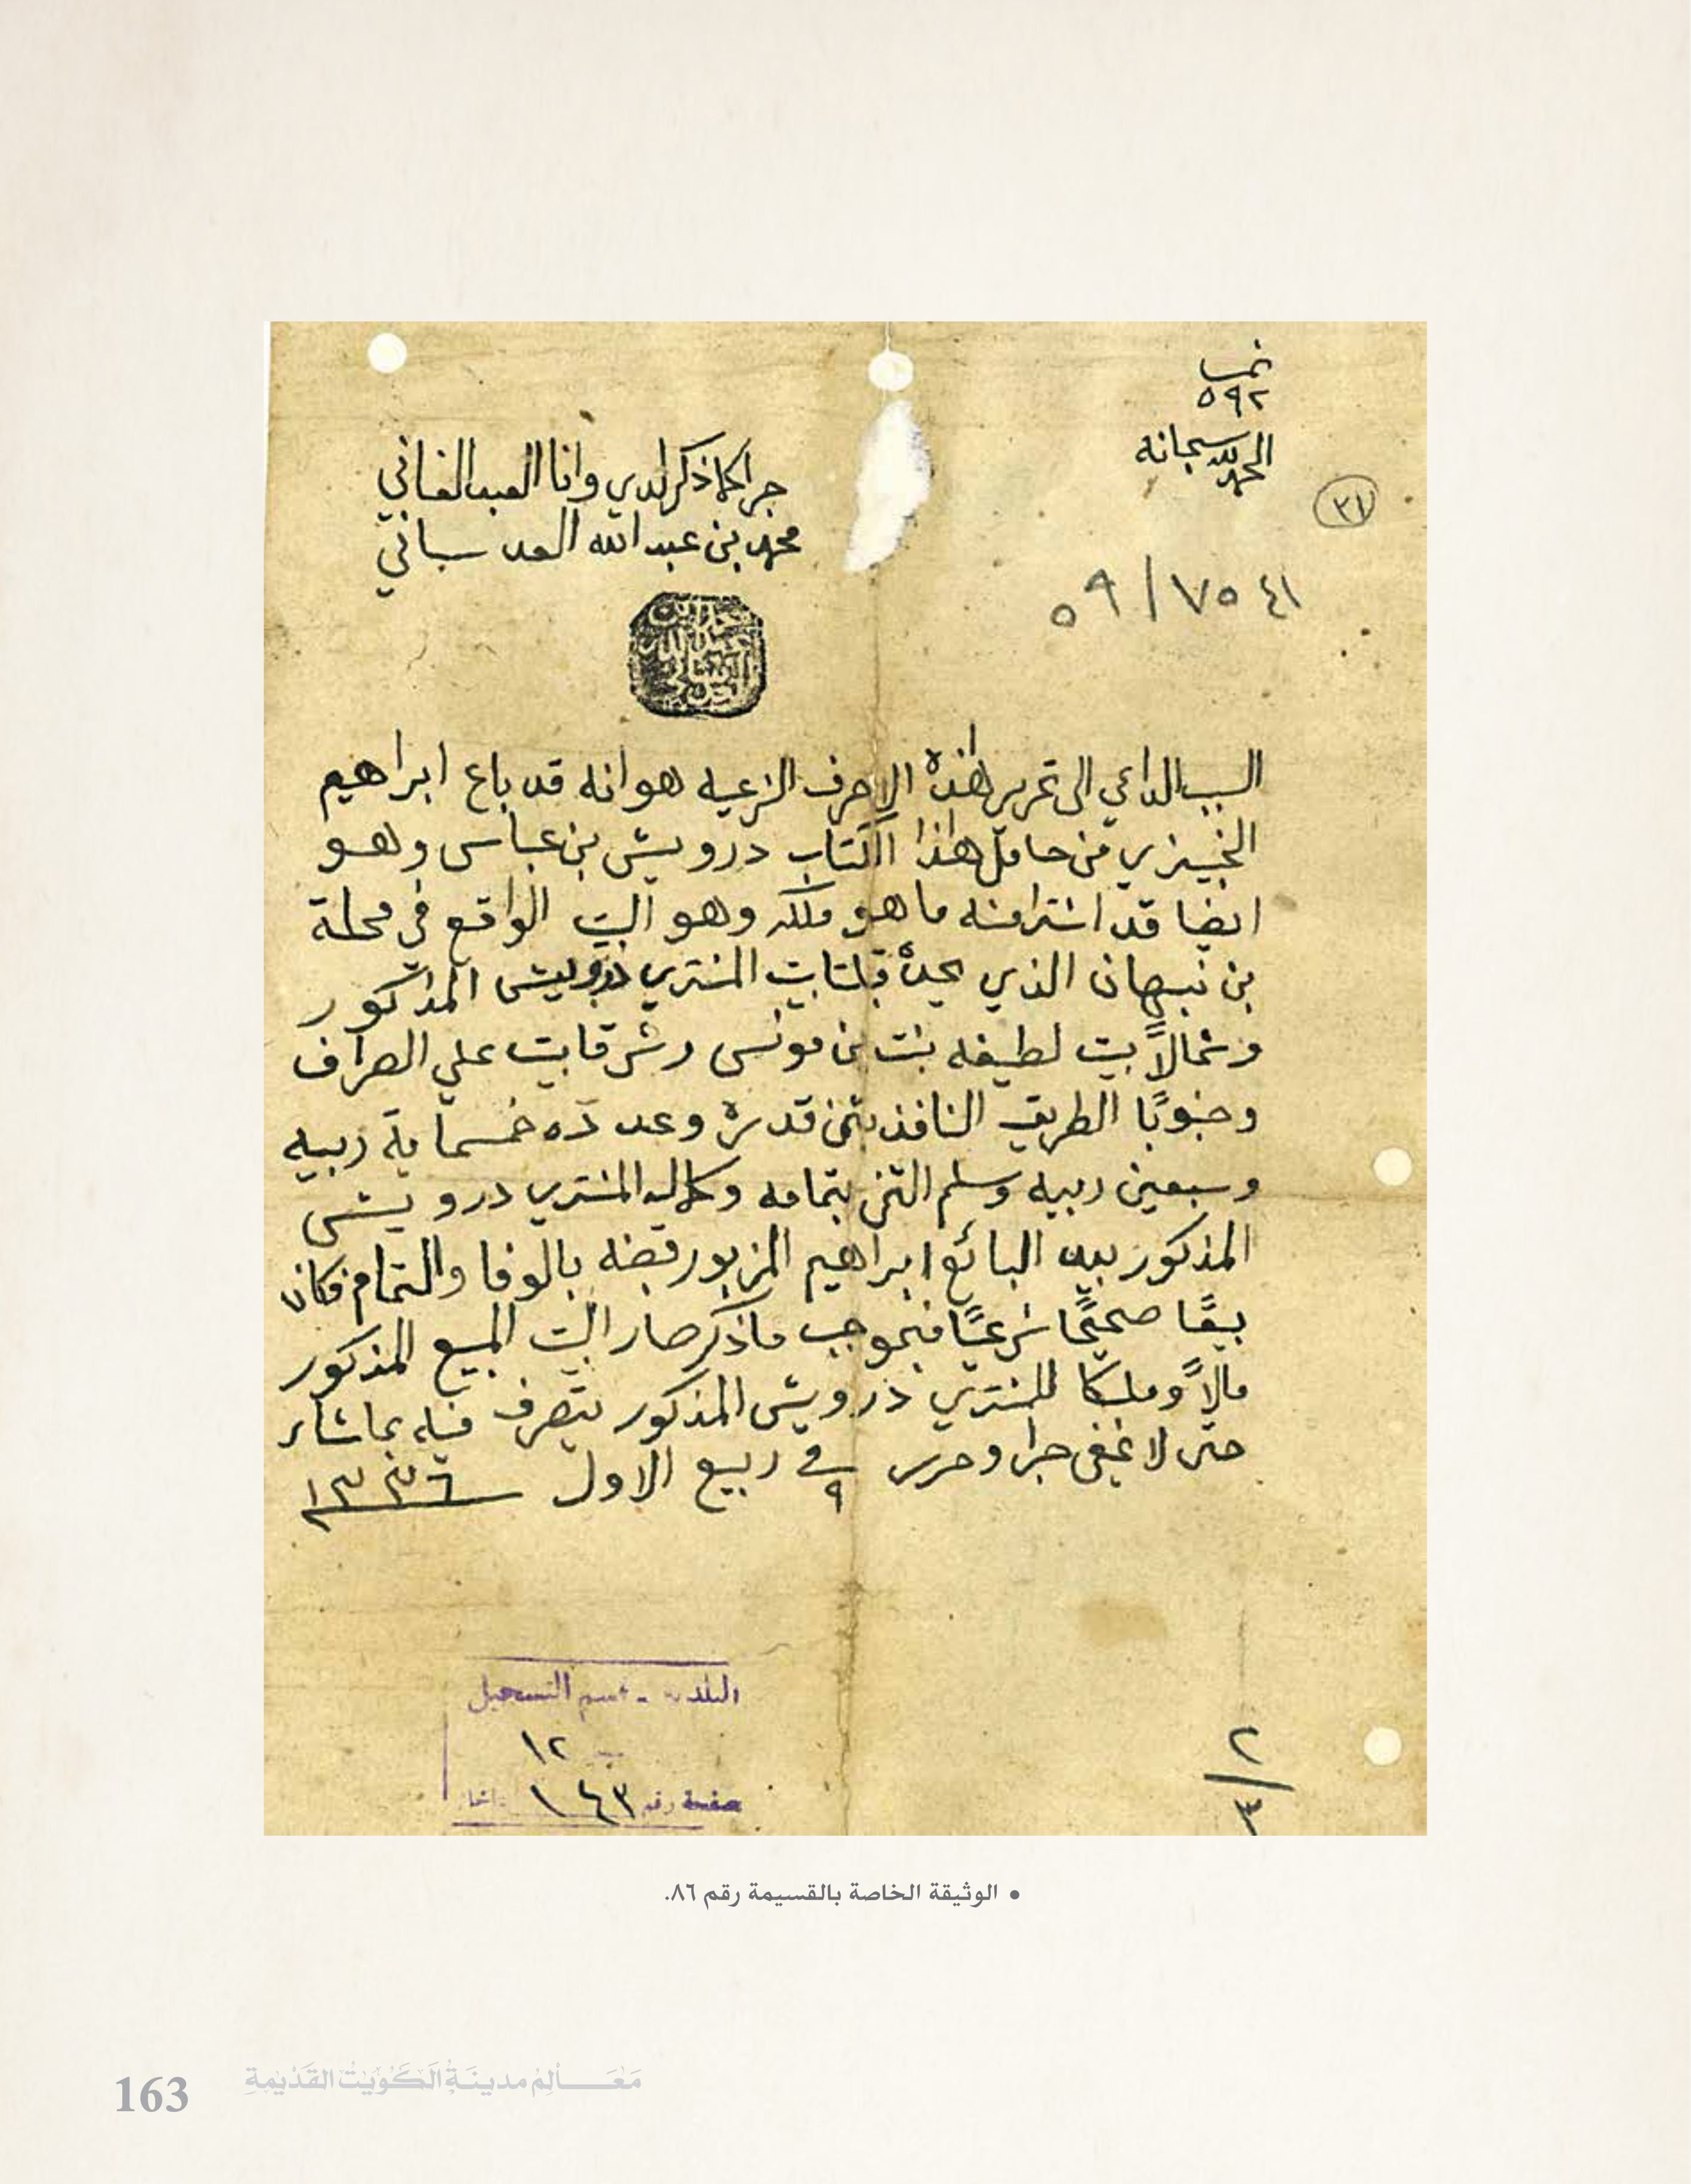 نمـ
٥٩٢
الحمد لله سبحانه
٣١
جرا كما ذكر لدي وانا العبد الفاني
محمد بن عبد الله العدساني
٤١ ٧٥ / ٥٩
السبب الداعي الى تحرير هذه الاحرف الشرعيه هو انه قد باع ابراهيم
الخبيزي من حامل هذا الكتاب درويش بن عباس وهو
ايضا قد اشترا منه ما هو ملكه وهو البيت الواقع في محلة
بن نبهان الذي يحده قبلتا بيت المشتري درويش المذكور
وشمالاً بيت لطيفه بنت بن مونس وشرقا بيت علي الصراف
وجنوبًا الطريق النافذ بثمن قدره وعدده خمسماية ربيه
وسبعين ربيه وسلم الثمن بتمامه وكماله المشتري درويش
المذكور بيد البائع ابراهيم المزبور قبضه بالوفا والتمام فكان
بيعًا صحيحًا شرعيًا فبموجب ما ذكر صار البيت المبيع المذكور
مالاً وملكا للمشتري درويش المذكور يتصرف فيه بما شاء
حتى لا يخفى جرا وحرر في ٩ ربيع الاول ١٣٣٦
البلدية - قسم التسجيل
١٢
صفحة رقم ١٤٣
٢/٣
• الوثيقة الخاصة بالقسيمة رقم ٨٦.
163 مَعَالِمُ مدينَةِ الكُويْتِ القَدْيمَةِ